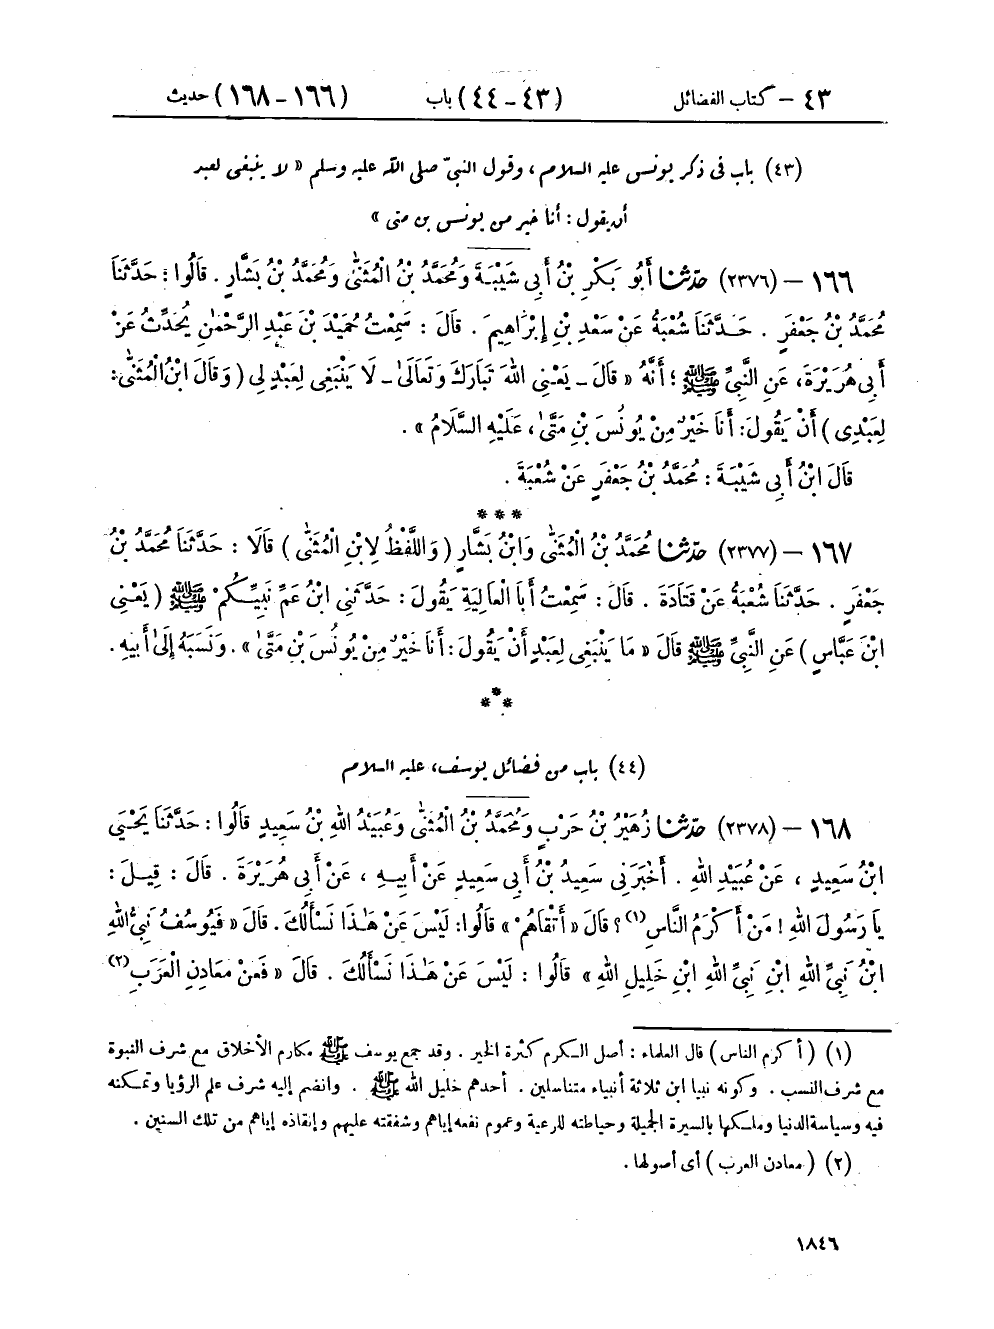 ٤٣ – كتاب الفضائل (٤٣-٤٤) باب (١٦٦-١٦٨) حديث
(٤٣) باب فى ذكر يونس عليه السلام، وقول النبىّ صلى الله عليه وسلم « لا ينبغى لعبد
أن يقول: أنا خير من يونس بن متى »
١٦٦ – (٢٣٧٦) حدّثنا أَبُو بَكْرِ بْنُ أَبِى شَيْبَةَ وَمُحَمَّدُ بْنُ الْمُثَنَّىٰ وَمُحَمَّدُ بْنُ بَشَّارٍ . قَالُوا : حَدَّثَنَا
مُحَمَّدُ بْنُ جَعْفَرٍ . حَدَّثَنَا شُعْبَةُ عَنْ سَعْدِ بْنِ إِبْرَاهِيمَ . قَالَ : سَمِعْتُ حُمَيْدَ بْنَ عَبْدِ الرَّحْمٰنِ يُحَدِّثُ عَنْ
أَبِى هُرَيْرَةَ، عَنِ النَّبِىِّ ﷺ ؛ أَنَّهُ « قَالَ ـ يَعْنِى اللهَ تَبَارَكَ وَتَعَالَىٰ ـ لَا يَنْبَغِى لِعَبْدٍ لِى ( وَقَالَ ابْنُ الْمُثَنَّىٰ :
لِعَبْدِى ) أَنْ يَقُولَ : أَنَا خَيْرٌ مِنْ يُونُسَ بْنِ مَتَّىٰ ، عَلَيْهِ السَّلَامُ » .
قَالَ ابْنُ أَبِى شَيْبَةَ : مُحَمَّدُ بْنُ جَعْفَرٍ عَنْ شُعْبَةَ .
***
١٦٧ – (٢٣٧٧) حدّثنا مُحَمَّدُ بْنُ الْمُثَنَّىٰ وَابْنُ بَشَّارٍ ( وَاللَّفْظُ لِابْنِ الْمُثَنَّىٰ ) قَالَا : حَدَّثَنَا مُحَمَّدُ بْنُ
جَعْفَرٍ . حَدَّثَنَا شُعْبَةُ عَنْ قَتَادَةَ . قَالَ : سَمِعْتُ أَبَا الْعَالِيَةِ يَقُولُ : حَدَّثَنِى ابْنُ عَمِّ نَبِيِّكُمْ ﷺ ( يَعْنِى
ابْنَ عَبَّاسٍ ) عَنِ النَّبِىِّ ﷺ قَالَ « مَا يَنْبَغِى لِعَبْدٍ أَنْ يَقُولَ : أَنَا خَيْرٌ مِنْ يُونُسَ بْنِ مَتَّىٰ » . وَنَسَبَهُ إِلَىٰ أَبِيهِ .
***
(٤٤) باب من فضائل يوسف، عليه السلام
١٦٨ – (٢٣٧٨) حدّثنا زُهَيْرُ بْنُ حَرْبٍ وَمُحَمَّدُ بْنُ الْمُثَنَّىٰ وَعُبَيْدُ اللهِ بْنُ سَعِيدٍ قَالُوا : حَدَّثَنَا يَحْيَىٰ
ابْنُ سَعِيدٍ ، عَنْ عُبَيْدِ اللهِ . أَخْبَرَنِى سَعِيدُ بْنُ أَبِى سَعِيدٍ عَنْ أَبِيهِ ، عَنْ أَبِى هُرَيْرَةَ . قَالَ : قِيلَ :
يَا رَسُولَ اللهِ ! مَنْ أَكْرَمُ النَّاسِ(١) ؟ قَالَ « أَتْقَاهُمْ » قَالُوا : لَيْسَ عَنْ هٰذَا نَسْأَلُكَ . قَالَ « فَيُوسُفُ نَبِىُّ اللهِ
ابْنُ نَبِىِّ اللهِ ابْنِ نَبِىِّ اللهِ ابْنِ خَلِيلِ اللهِ » قَالُوا : لَيْسَ عَنْ هٰذَا نَسْأَلُكَ . قَالَ « فَعَنْ مَعَادِنِ الْعَرَبِ(٢)
(١) ( أكرم الناس ) قال العلماء : أصل الكرم كثرة الخير . وقد جمع يوسف ﷺ مكارم الأخلاق مع شرف النبوة
مع شرف النسب . وكونه نبيا ابن ثلاثة أنبياء متناسلين . أحدهم خليل الله ﷺ . وانضم إليه شرف علم الرؤيا وتمكنه
فيه وسياسة الدنيا وملكها بالسيرة الجميلة وحياطته للرعية وعموم نفعه إياهم وشفقته عليهم وإنقاذه إياهم من تلك السنين .
(٢) ( معادن العرب ) أى أصولها .
١٨٤٦